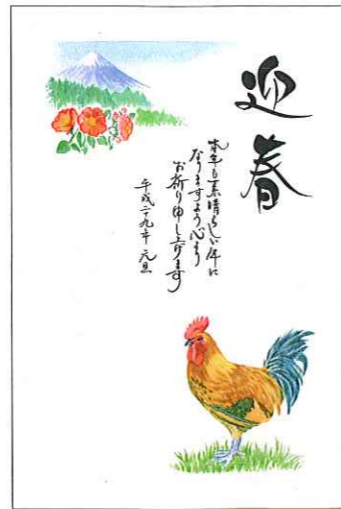 迎春
本年も素晴らしい年に
なりますよう心より
お祈り申し上げます
平成二九年 元旦